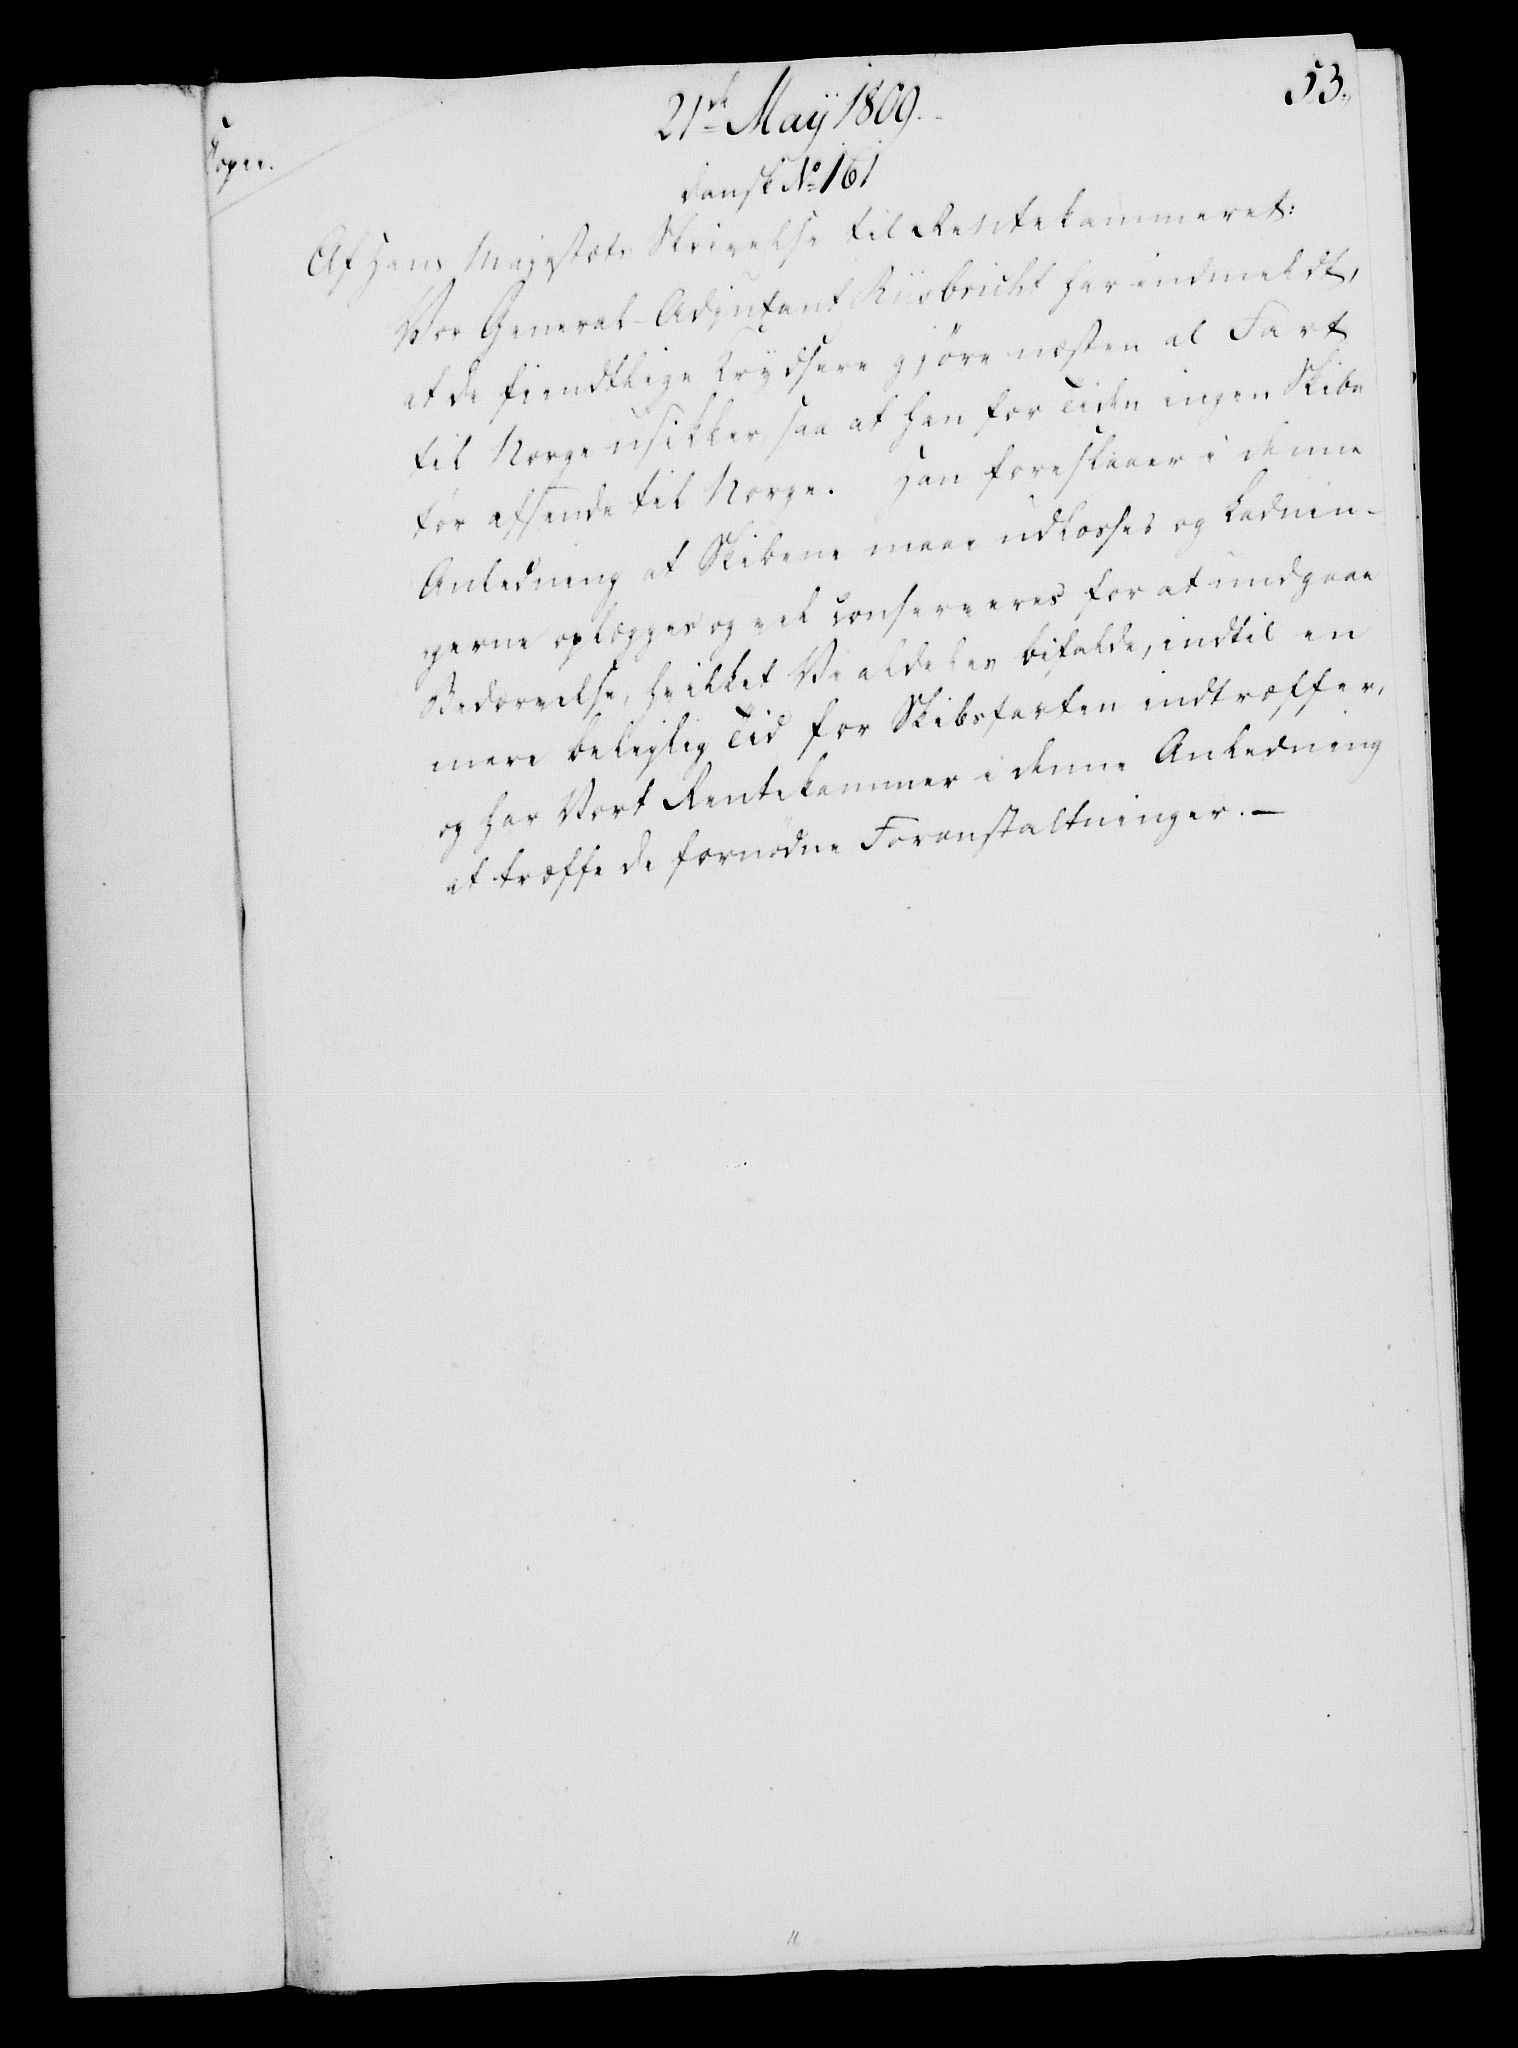 53.
21de Maÿ 1809.
Copie.
dansk No 161
Af Hans Majestæts Skrivelse til Rentekammeret:
Vor General-Adjutant Riisbricht har indmeldt,
at de fiendtlige Krydsere gjöre næsten al Fart
til Norge usikker, saa at han for Tiden ingen Skibe
tör afsende til Norge. Han foreslaaer i denne
Anledning at Skibene maae udlosses og Ladnin-
gerne oplægges og vel conserveres for at undgaae
Bedærvelse, hvilket Vi aldeles bifalde, indtil en
mere beleilig Tid for Skibsfarten indtræffer,
og har Vort Rentekammer i denne Anledning
at træffe de fornödne Foranstaltninger. —